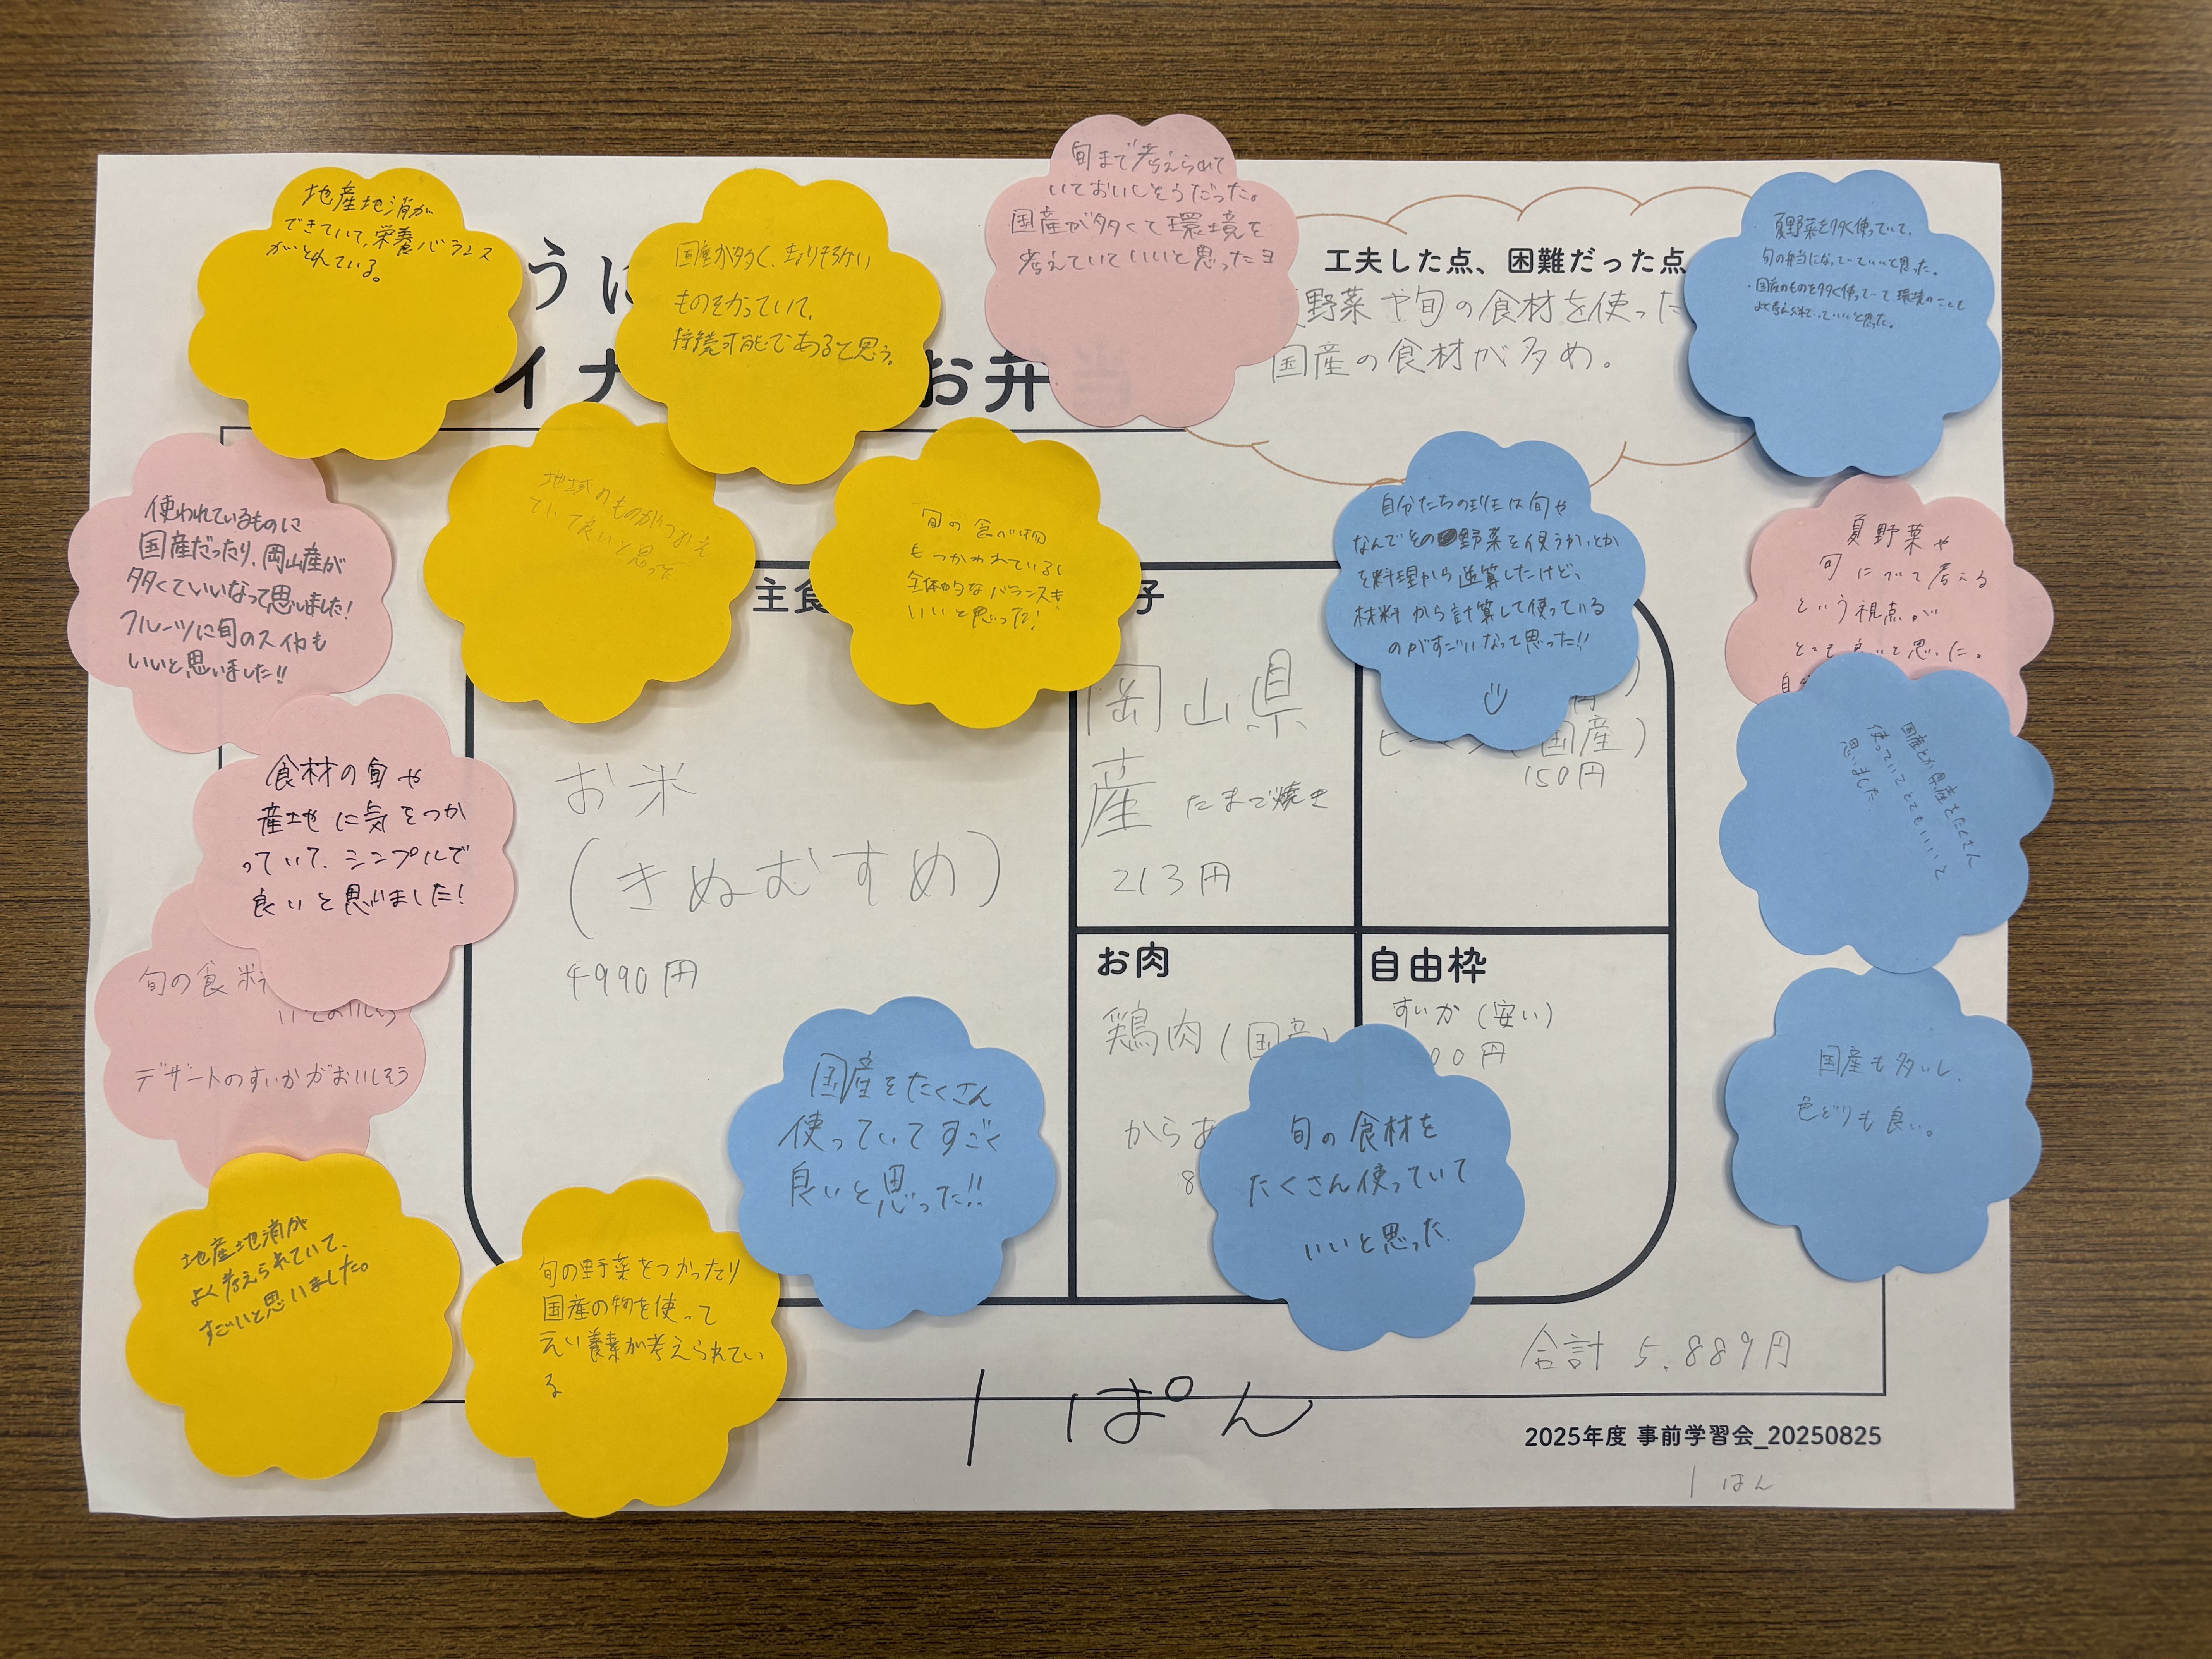 地産地消が
できていて、栄養バランス
がとれている。
うに
国産が多く、
ものをつかっていて、
持続可能であると思う。
旬まで考えられて
いておいしそうだった。
国産が多くて環境を
考えていていいと思ったヨ
工夫した点、困難だった点
野菜や旬の食材を使った
国産の食材が多め。
夏野菜を多く使っていて、
旬の弁当になっていていいと思った。
・国産のものを多く使っていて環境のことも
よく考えられていていいと思った。
イナ
お弁当
使われているものに
国産だったり、岡山産が
多くていいなって思いました!
フルーツに旬のスイカも
いいと思いました!!
地域のものがつかえ
ていて良いと思った
旬の食べ物
もつかわれているし
全体的なバランスも
いいと思った!
自分たちの班は旬や
なんでその野菜を使うか、とか
を料理から逆算したけど、
材料から計算して使っている
のがすごいなって思った!!
夏野菜や
旬について考える
という視点が
とても良いと思った。
主食
子
食材の旬や
産地に気をつか
っていて、シンプルで
良いと思いました!
お米
(きぬむすめ)
4990円
岡山県
産 たまご焼き
213円
ピーマン(国産)
150円
国産とか県産をたくさん
使っていてとてもいいと
思いました
旬の食材
デザートのすいかがおいしそう
お肉
鶏肉(国産)
からあ
18
自由枠
すいか(安い)
00円
国産をたくさん
使っていてすごく
良いと思った!!
旬の食材を
たくさん使っていて
いいと思った
国産も多いし、
色どりも良い。
地産地消が
よく考えられていて、
すごいと思いました。
旬の野菜をつかったり
国産の物を使って
えい養素が考えられてい
る
合計 5.889円
1ぱん
2025年度 事前学習会_20250825
1はん